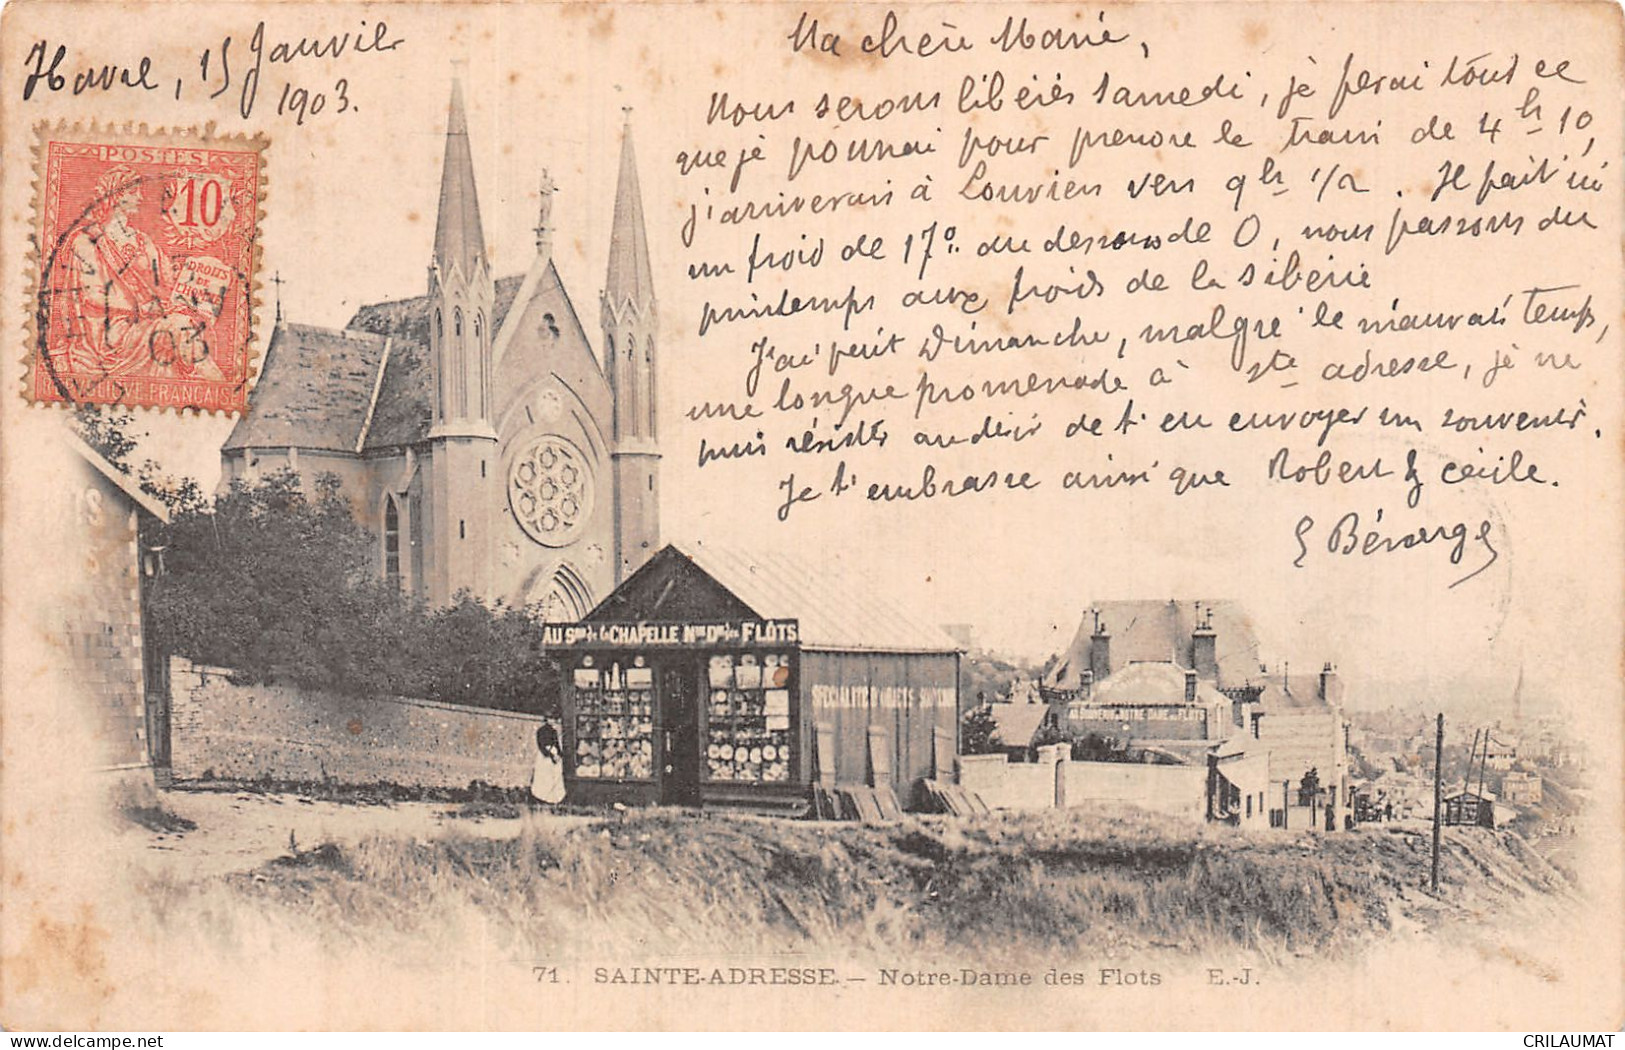 Havre, 15 Janvier
1903.
Ma chère Marie,
Nous serons libérés samedi, je ferai tout ce
que je pourrai pour prendre le train de 4 h 10,
j'arriverais à Louviers vers 9h 1/2. Il fait ici
un froid de 17° au dessous de 0, nous passons du
printemps aux froids de la Sibérie
J'ai fait Dimanche, malgré le mauvais temps,
une longue promenade à Ste adresse, je ne
puis résister au désir de t'en envoyer un souvenir.
Je t'embrasse ainsi que Robert & Cécile.
POSTES
10
DROITS
DE
L'HOMME
RÉPUBLIQUE FRANÇAISE
JANV
03
AU SNIR de la CHAPELLE NTRE DME des FLOTS
SPÉCIALITÉ D'OBJETS
AU SOUVENIR DE NOTRE DAME DES FLOTS
71. SAINTE-ADRESSE. — Notre-Dame des Flots E.-J.
CRILAUMAT